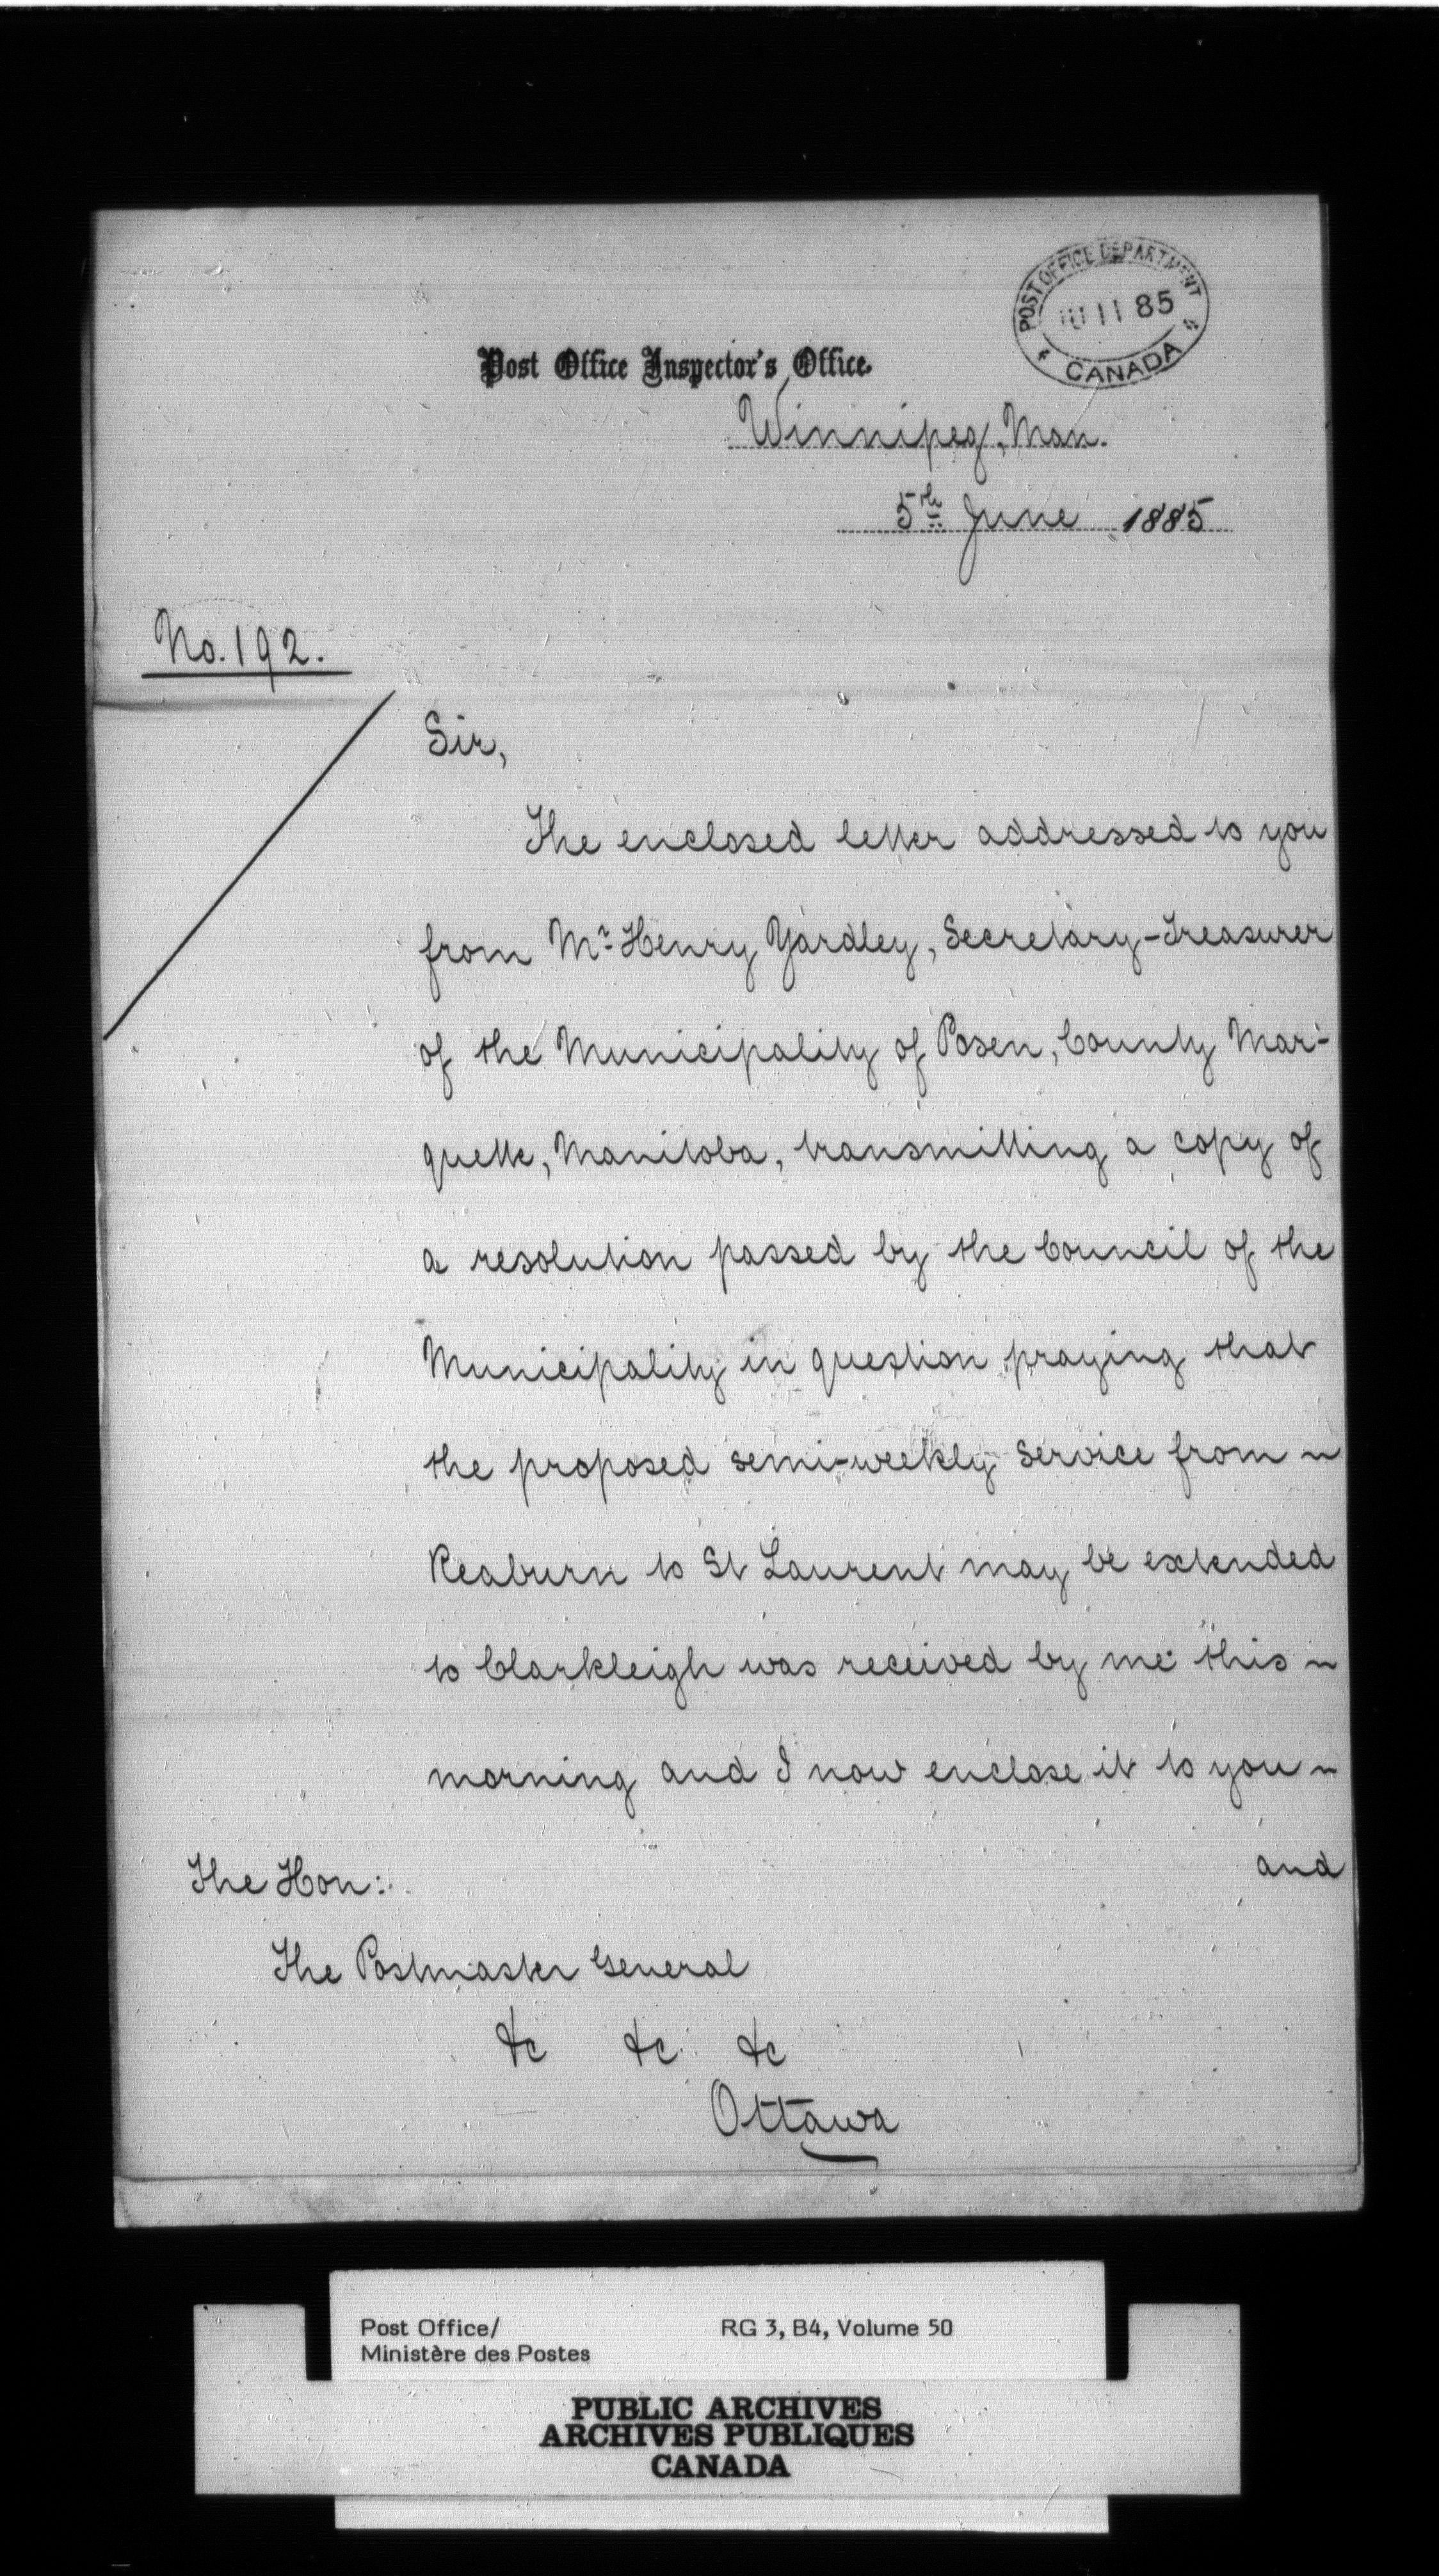 POST OFFICE DEPARTMENT
11 85
CANADA
Post Office Inspector's Office.
Winnipeg, Man.
5th June 1885
No. 192.
Sir,
The enclosed letter addressed to you
from Mr Henry Yardley, Secretary-Treasurer
of the Municipality of Posen, County Mar-
quette, Manitoba, transmitting a copy of
a resolution passed by the Council of the
Municipality in question praying that
the proposed semi-weekly service from ~
Reaburn to St Laurent may be extended
to Clarkleigh was received by me this ~
morning and I now enclose it to you ~
and
The Hon:
The Postmaster General
&c &c &c
Ottawa
Post Office/ RG 3, B4, Volume 50
Ministère des Postes
PUBLIC ARCHIVES
ARCHIVES PUBLIQUES
CANADA